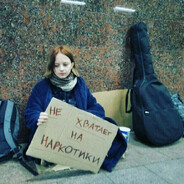 НЕ ХВАТАЕТ
НА
НАРКОТИКИ